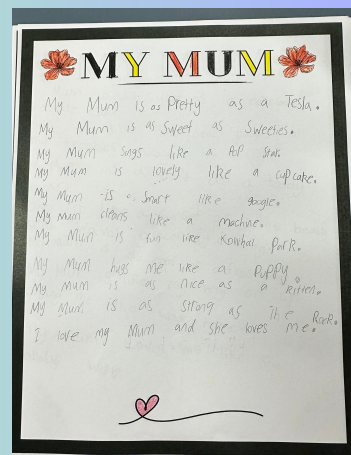 MY MUM
My Mum is as Pretty as a Tesla.
My Mum is as Sweet as Sweeties.
My Mum sings like a Pop Star.
My Mum is lovely like a cupcake.
My Mum is a Smart like google.
My Mum cleans like a machine.
My Mum is fun like Kowhai Park.
My Mum hugs me like a Puppy
My Mum is as nice as a kitten.
My Mum is as strong as The Rock.
I love my Mum and she loves me.